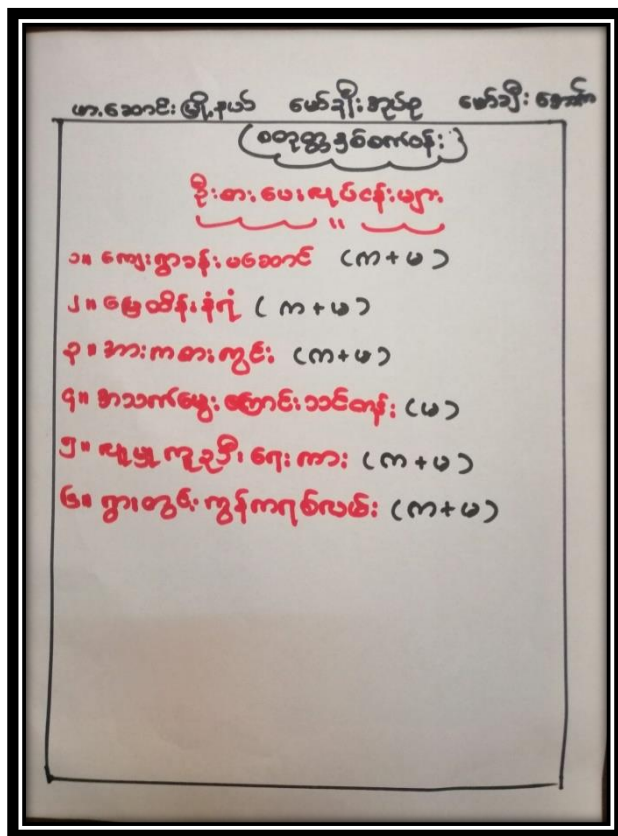 ဖာ.ဆောင်းမြို့နယ် မော်ချီးအုပ်စု မော်ချီး အောက်
(စတုတ္ထနှစ်စက်ဝန်း)
ဦးစားပေးလုပ်ငန်းများ
"
၁။ ကျေးရွာခန်းမဆောင် (က+မ)
၂။ မြေထိန်းနံရံ (က+မ)
၃။ အားကစားကွင်း (က+မ)
၄။ အသက်မွေးကြောင်းသင်တန်း (မ)
၅။ လူမှုကူညီရေးကား (က+မ)
၆။ ရွာတွင်းကွန်ကရစ်လမ်း (က+မ)